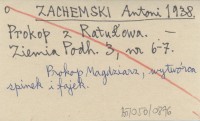 o ZACHEMSKI Antoni 1938.
Prokop z Ratułowa. –
Ziemia Podh. 3, nr 6-7.
Prokop Magdziarz, wytwórca
spinek i fajek.